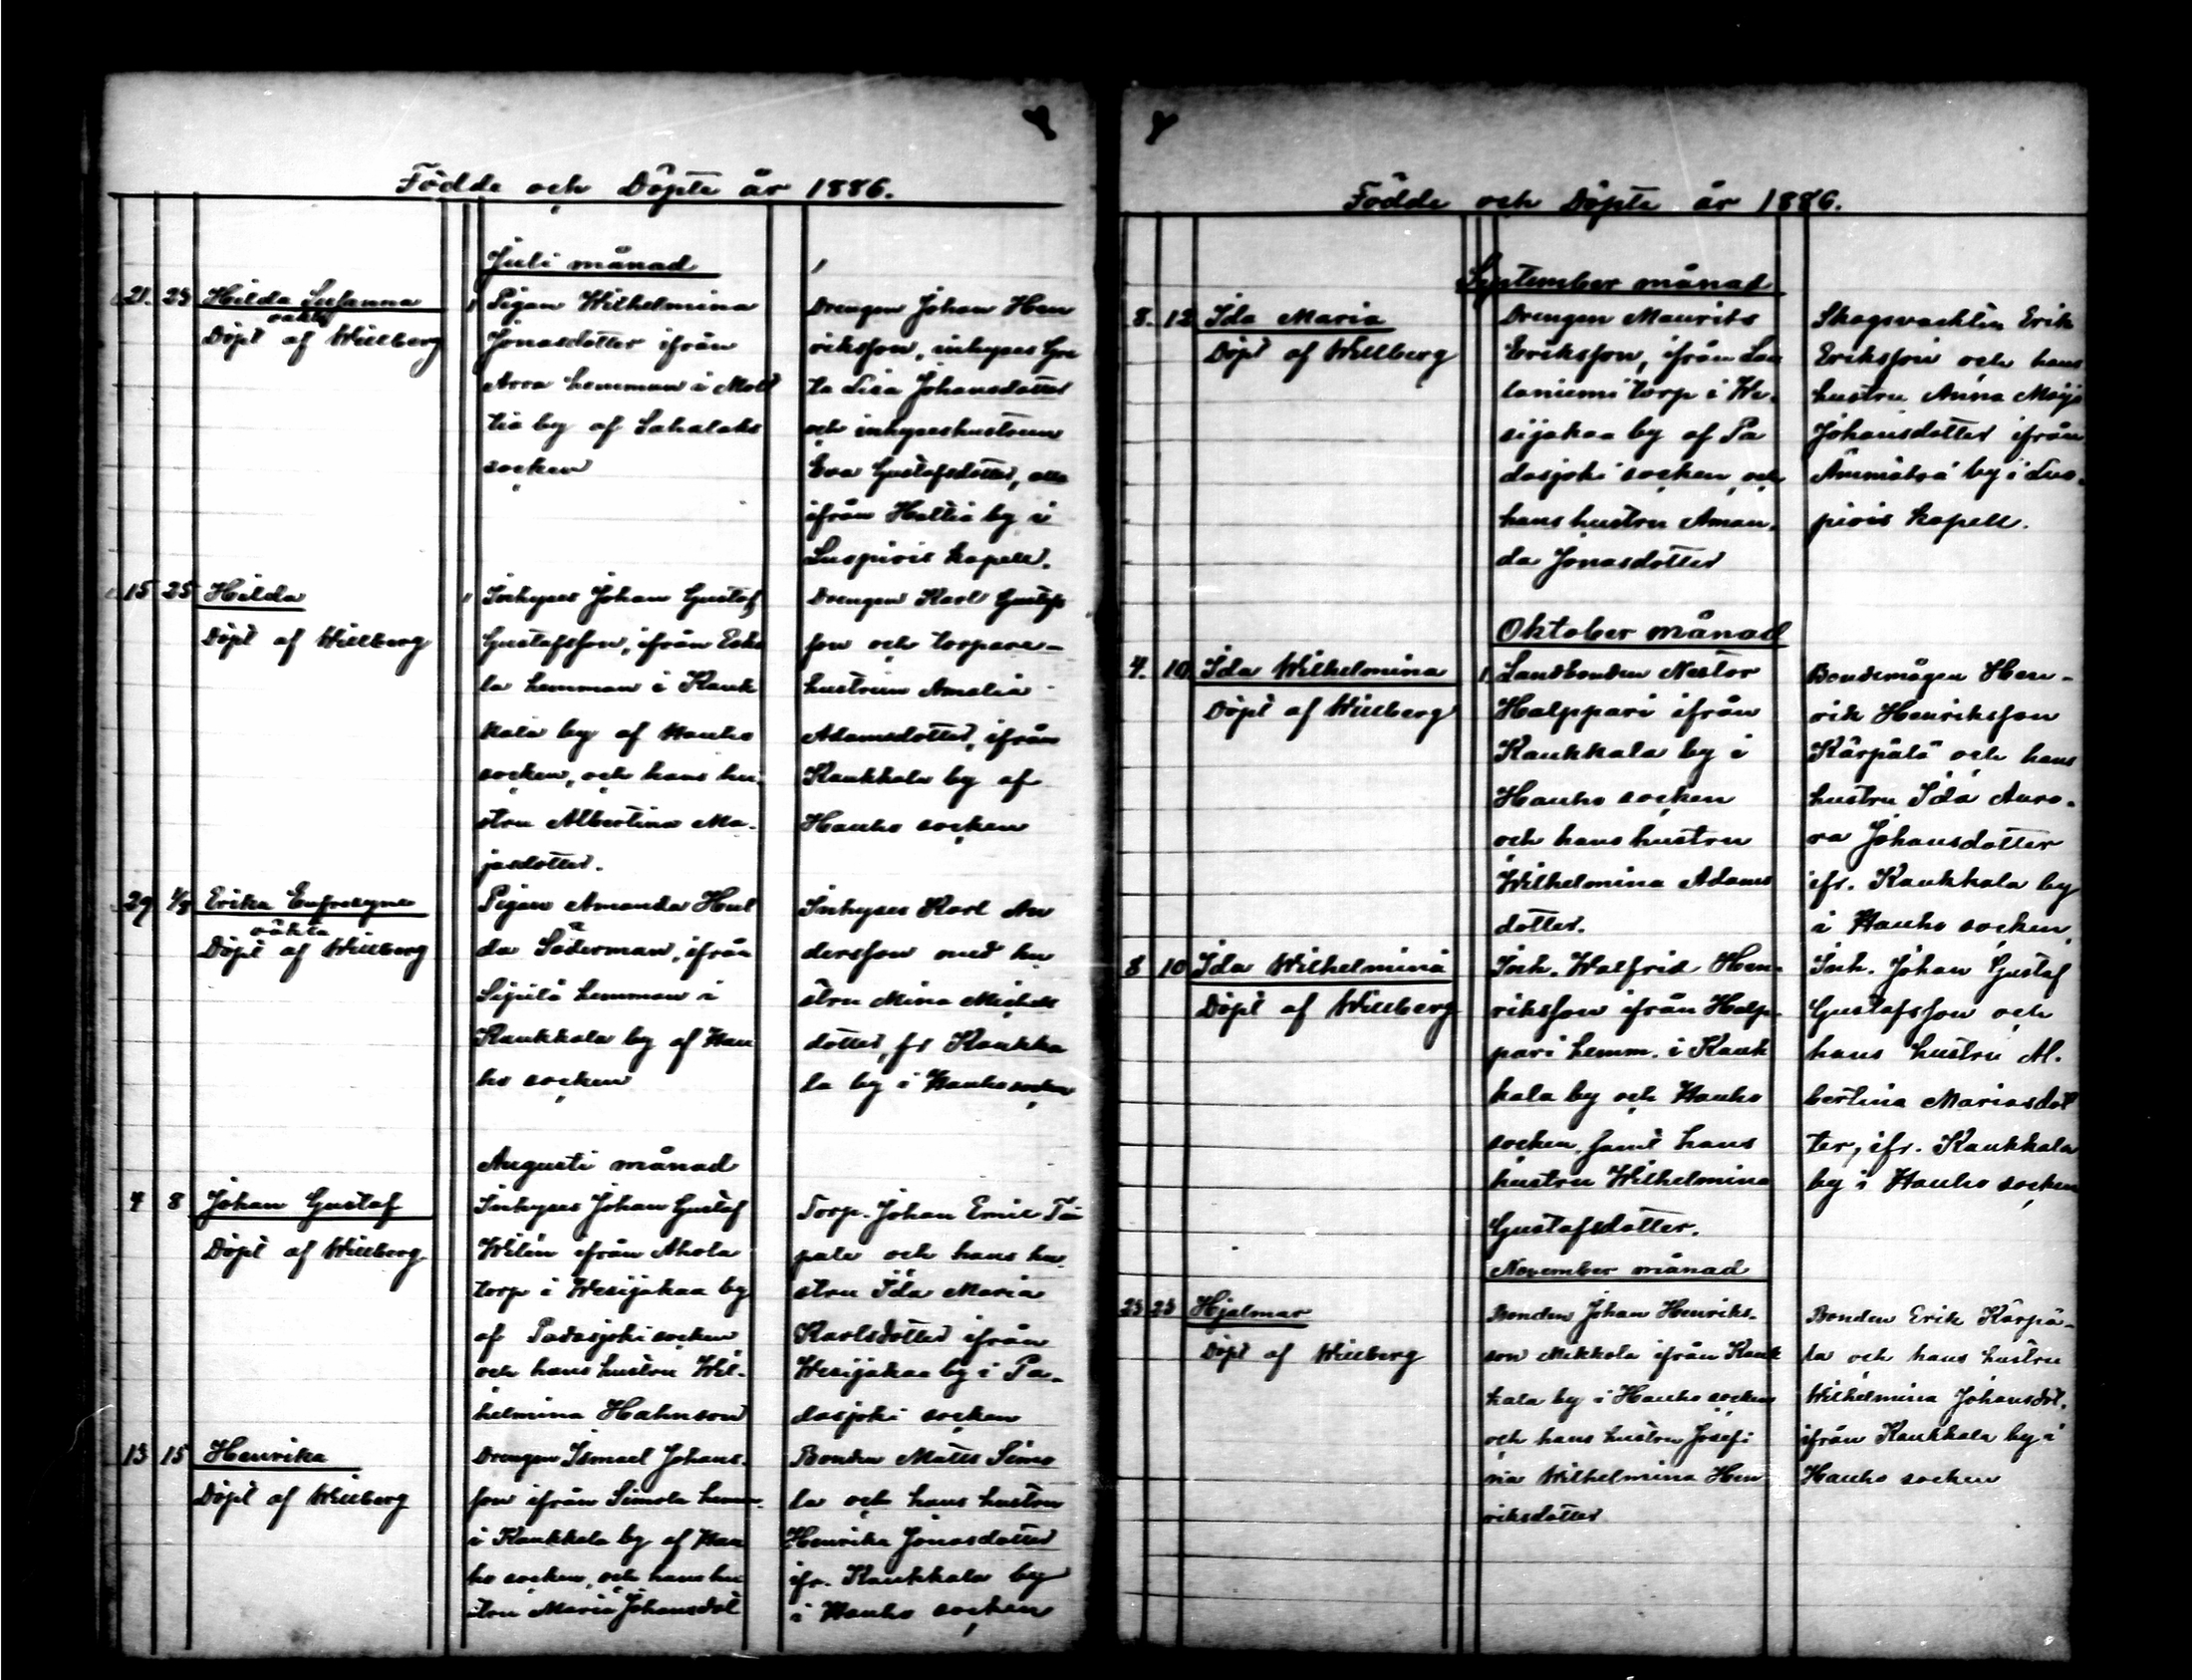 Födde och Döpte år 1886.
Juli månad
21. 24 Hilda Susanna
oäkta
Döpt af Willberg
Pigan Wilhelmina
Jonasdotter ifrån
Arra hemman i Molt
tia by af Sahalaks
socken
Drengen Johan Hen
riksson, inhyses Gre
ta Lisa Johansdotter
och inhyseshustrun
Eva Gustafsdotter, alla
ifrån Haltia by i
Luopiois kapell.
15 25 Hilda
Döpt af Willberg
Inhyses Johan Gustaf
Gustafsson, ifrån Esko
la hemman i Kauk
kala by af Hauho
socken, och hans hu-
stru Albertina Ma-
jasdotter.
Drengen Karl Gustafs
son och torpare-
hustrun Amalia
Adamsdotter, ifrån
Kaukkala by af
Hauho socken
29 1/8 Erika
oäkta
Döpt af Willberg
Pigan Amanda Hul
da Söderman, ifrån
Sipilä hemman i
Kaukkala by af Hau
ho socken
Inhyses Karl An
dersson med hu
stru Mina Michels
dotter, fr Kaukka
la by i Hauho socken
Augusti månad
4 8 Johan Gustaf
Döpt af Willberg
Inhyses Johan Gustaf
Wilén ifrån Ahola
torp i Wesijakaa by
af Padasjoki socken
och hans hustru Wil-
helmina Hahnson
Torp. Johan Emil Tai
pale och hans hu-
stru Ida Maria
Karlsdotter ifrån
Wesijakaa by i Pa-
dasjoki socken
13 15 Henrika
Döpt af Willberg
Drengen Ismael Johans-
son ifrån Simola hem.
i Kaukkala by af Hau
ho socken, och hans hu
stru Maria Johansdot
Bonden Matts Simo
la och hans hustru
Henrika Jonasdotter
ifr. Kaukkala by
i Hauho socken
Födde och Döpte år 1886.
September månad
8. 12 Ida Maria
Döpt af Willberg
Drengen Maurits
Eriksson, ifrån Lau
taniemi torp i We-
sijakaa by af Pa
dasjoki socken och
hans hustru Aman-
da Jonasdotter
Skogsvackten Erik
Eriksson och hans
hustru Anna Maja
Johansdotter ifrån
Ämmätsä by i Luo-
piois kapell.
Oktober månad
4. 10 Ida Wilhelmina
Döpt af Willberg
Landbonden Nestor
Halppari ifrån
Kaukkala by i
Hauho socken
och hans hustru
Wilhelmina Adams
dotter.
Bondemågen Hen-
rik Henriksson
Kärpälä och hans
hustru Ida Auro-
ra Johansdotter
ifr. Kaukkala by
i Hauho socken
8 10 Ida Wilhelmina
Döpt af Willberg
Inh. Walfrid Hen-
riksson ifrån Halp-
pari hemm. i Kauk
kala by och Hauho
socken, samt hans
hustru Wilhelmina
Gustafsdotter.
Inh. Johan Gustaf
Gustafsson och
hans hustru Al-
bertina Mariasdot
ter, ifr. Kaukkala
by i Hauho socken
November månad
23 23 Hjalmar
Döpt af Willberg
Bonden Johan Henriks-
son Mekkola ifrån Kauk
kala by i Hauho socken
och hans hustru Josefi
na Wilhelmina Hen
riksdotter
Bonden Erik Kärpä-
lä och hans hustru
Wilhelmina Johansdot.
ifrån Kaukkala by i
Hauho socken